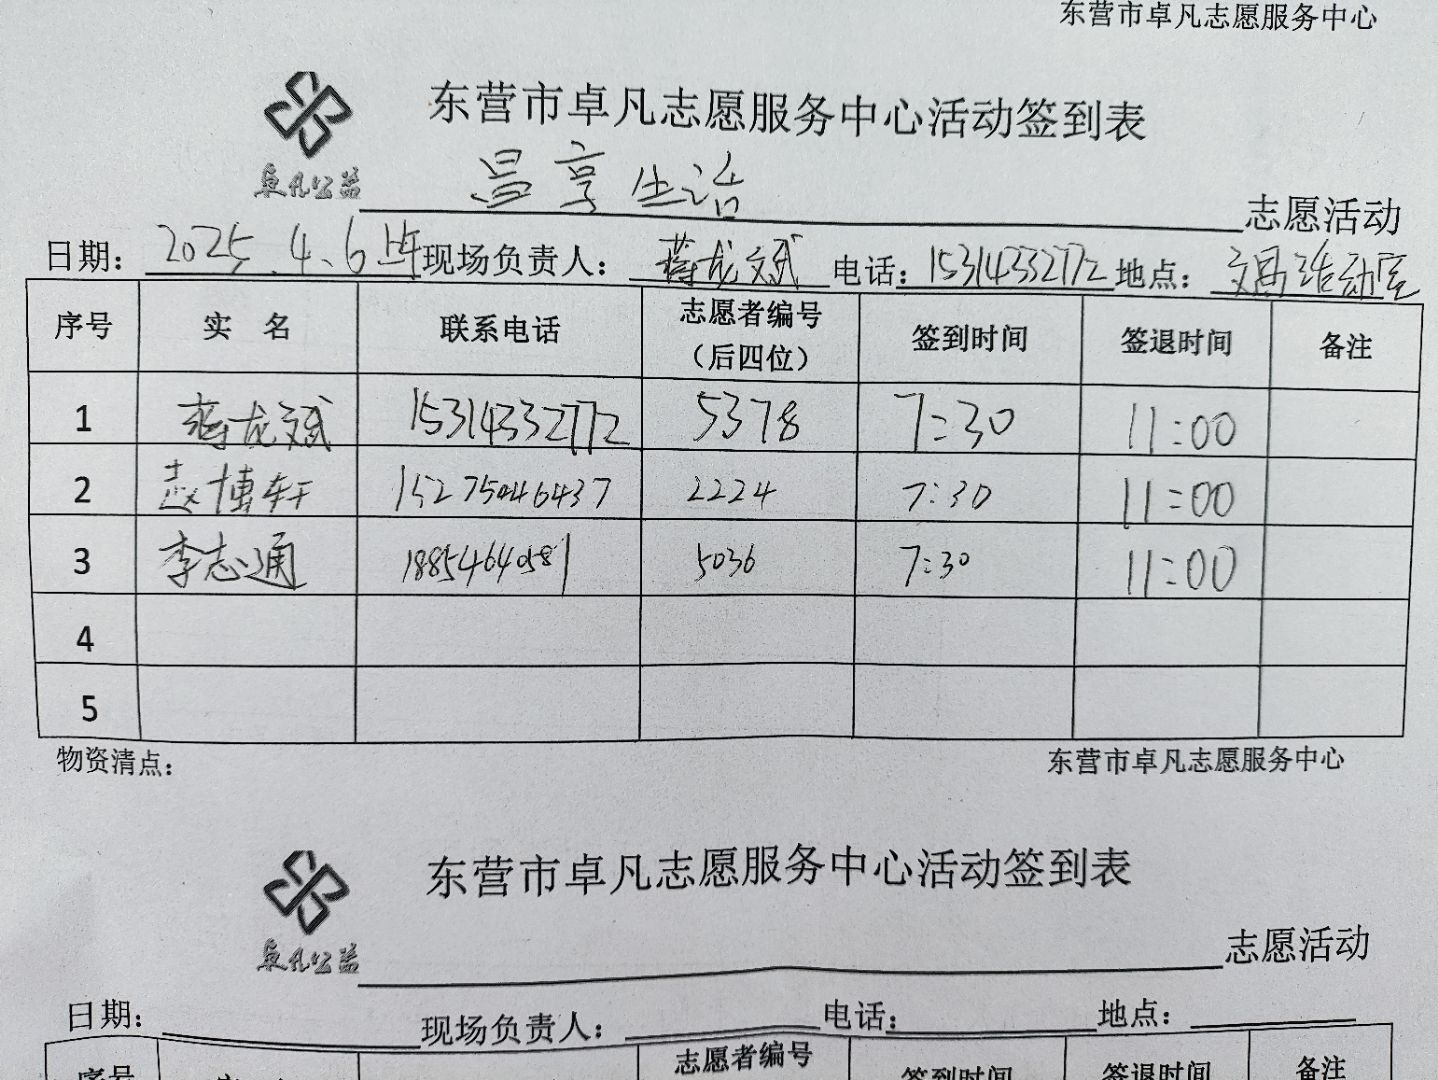 东营市卓凡志愿服务中心
东营市卓凡志愿服务中心活动签到表
卓凡公益 享生活 志愿活动
日期：2025.4.6上午 现场负责人：蒋龙斌 电话：15314332772 地点：活动室
序号 实 名 联系电话 志愿者编号（后四位） 签到时间 签退时间 备注
1 蒋龙斌 15314332772 5378 7:30 11:00
2 赵博轩 15275046437 2224 7:30 11:00
3 李志通 18854640581 5036 7:30 11:00
4
5
物资清点： 东营市卓凡志愿服务中心
东营市卓凡志愿服务中心活动签到表
卓凡公益 志愿活动
日期： 现场负责人： 电话： 地点：
序号 实 名 志愿者编号 签到时间 签退时间 备注